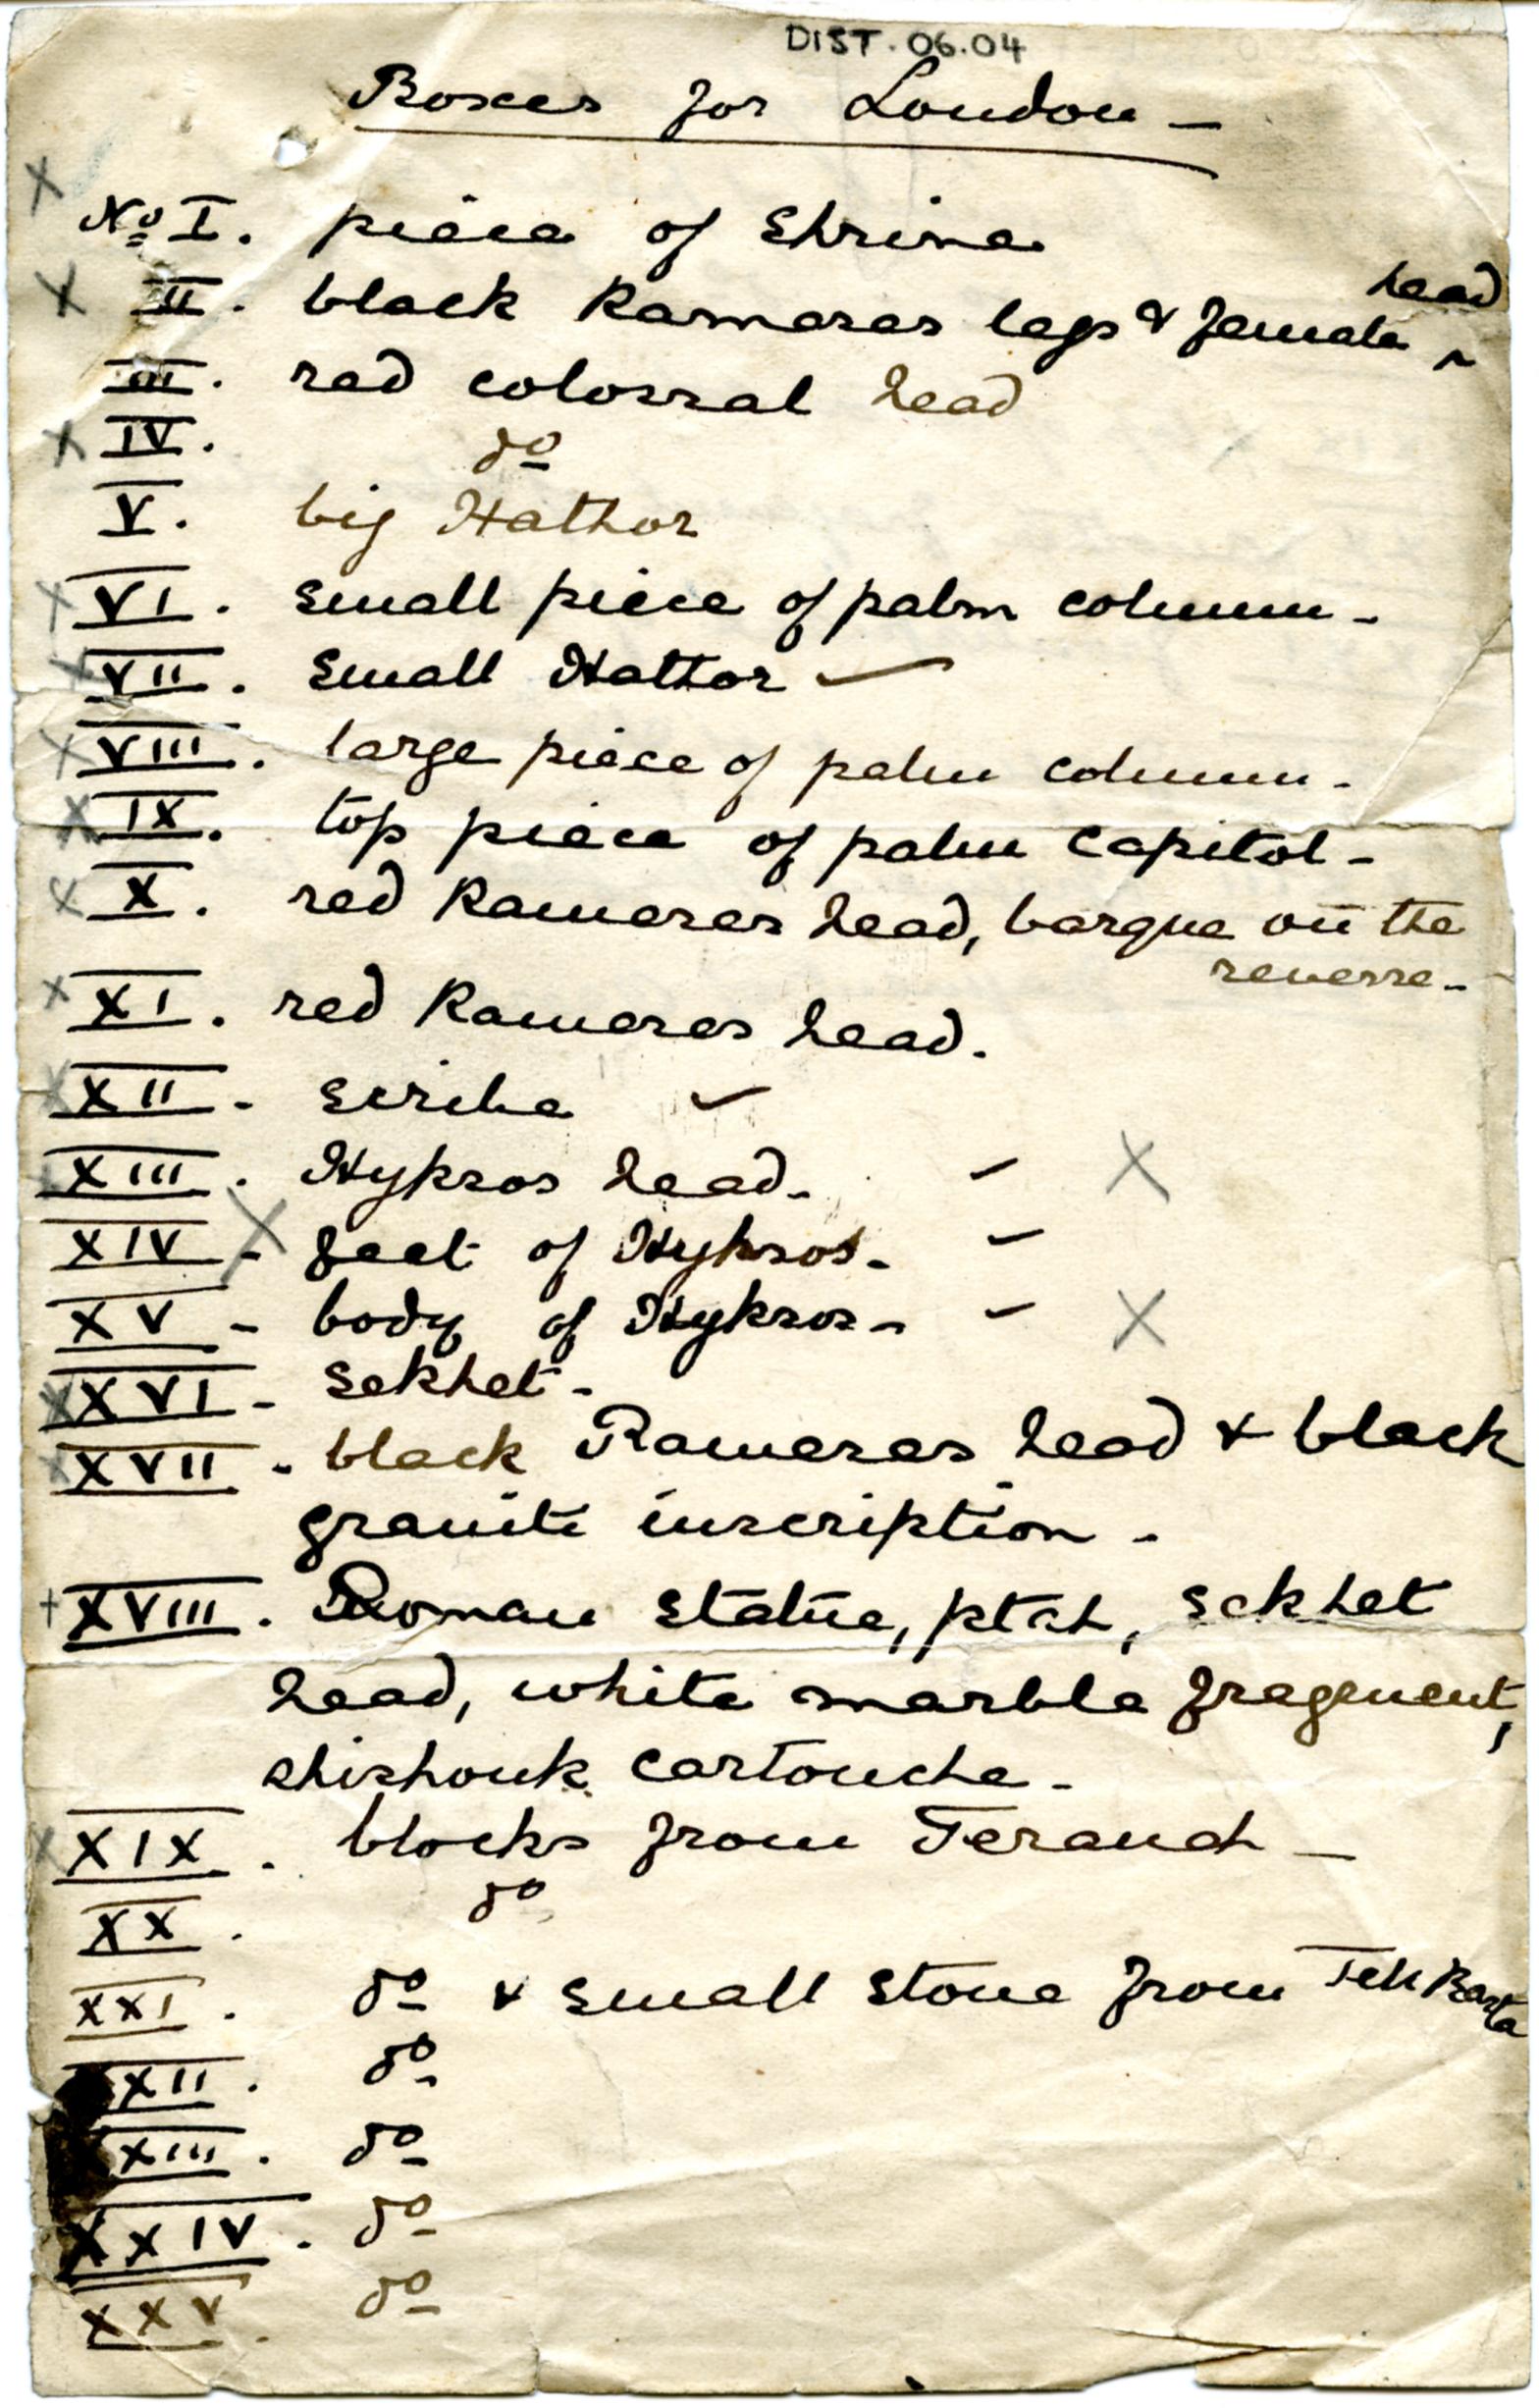 DIST. 06.04
Boxes for London -
X
Nº I. piece of Shrine
X II. black Rameses legs & female ^ head
III. red colossal head
X IV. dº
V. big Hathor
X VI. small piece of palm column -
X VII. small Hathor ✓
X VIII. large piece of palm column -
X IX. top piece of palm capitol -
X X. red Rameses head, barque on the
reverse -
X XI. red Rameses head.
X XII - scribe ✓
XIII. Hyksos head - - X
XIV - X feet of Hyksos - -
XV - body of Hyksos - - X
X XVI - Sekhet -
X XVII - black Rameses head & black
granite inscription -
+ XVIII. Roman statue, ptah, sekhet
head, white marble fragment,
shishonk cartouche -
X XIX. blocks from Teraneh -
XX. dº
XXI. dº & small stone from Tell Basta
XXII. dº
XXIII. dº
XXIV. dº
XXV. dº